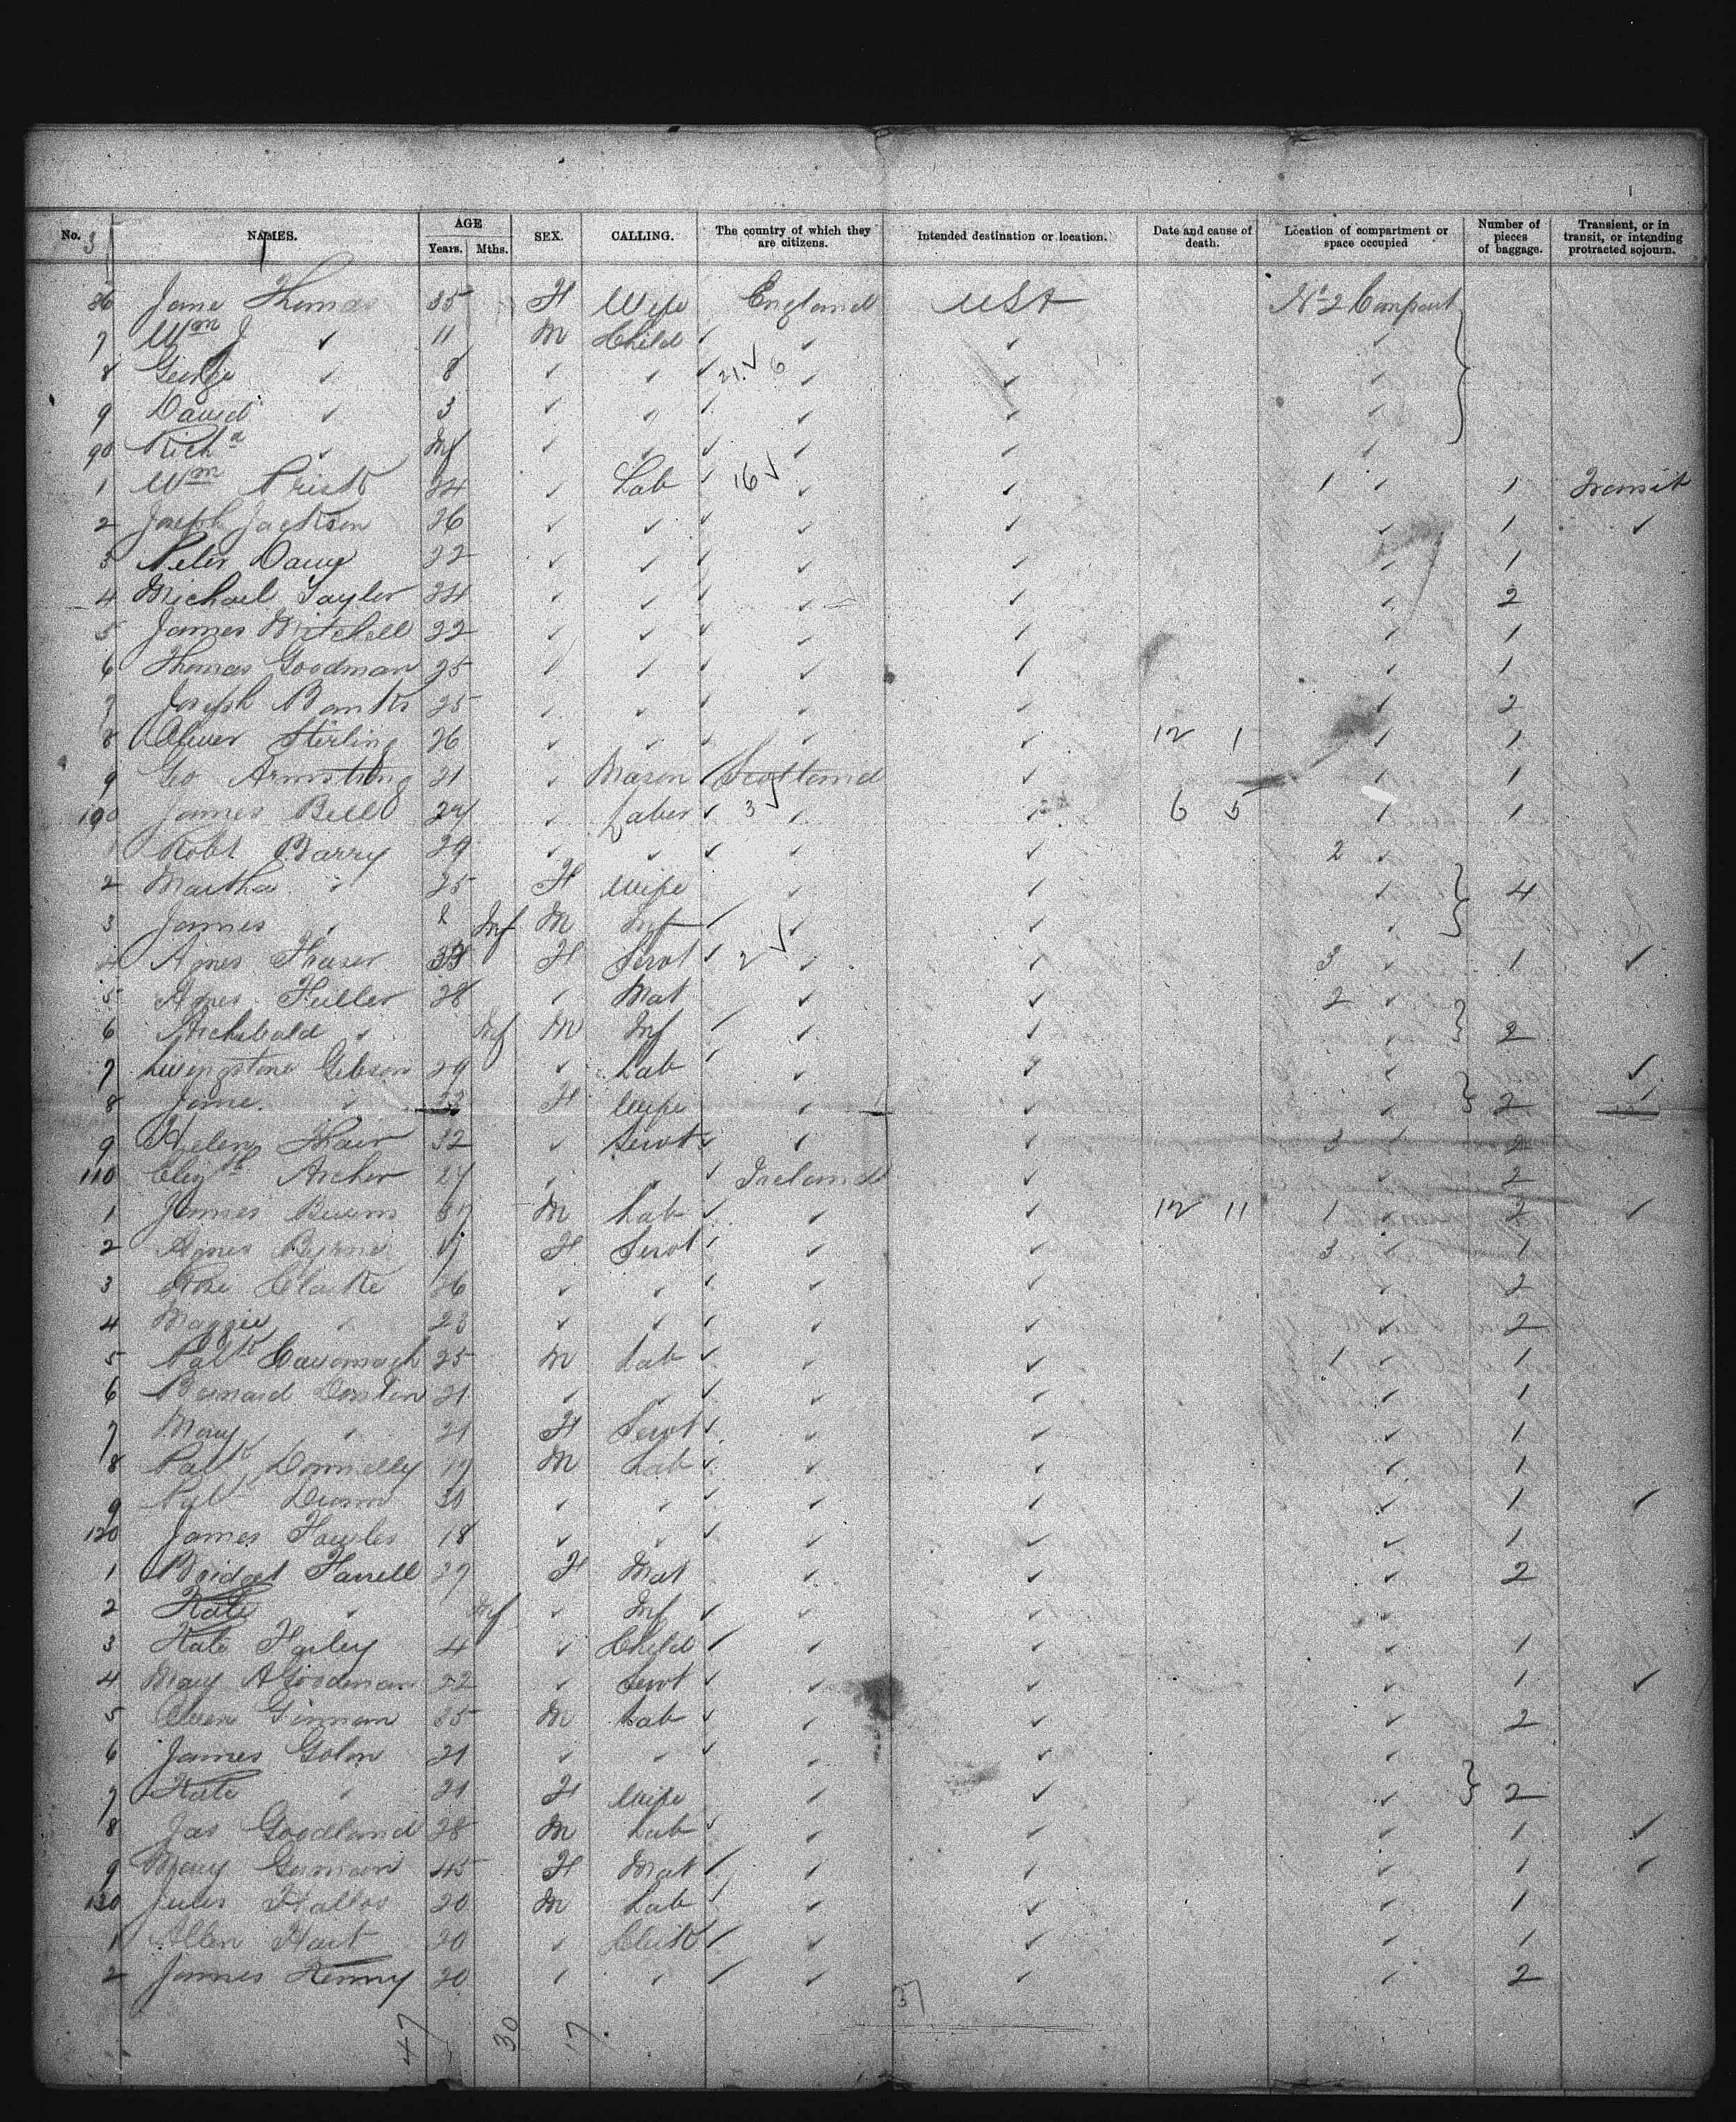 No. NAMES. AGE Years. Mths. SEX. CALLING. The country of which they are citizens. Intended destination or location. Date and cause of death. Location of compartment or space occupied Number of pieces of baggage. Transient, or in transit, or intending protracted sojourn.
86 Jane Thomas 35 F Wife England USA No 2 Compart
7 Wm J ✓ 11 M Child ✓ ✓ ✓ ✓
8 George ✓ 8 ✓ ✓ ✓ 21 ✓ 6 ✓ ✓ ✓
9 David ✓ 3 ✓ ✓ ✓ ✓ ✓ ✓
90 Richd ✓ Inf ✓ ✓ ✓ ✓ ✓ ✓
1 Wm 24 ✓ Lab ✓ 16 ✓ ✓ ✓ 1 ✓ 1 Transit
2 Joseph Jackson 26 ✓ ✓ ✓ ✓ ✓ ✓ 1 ✓
3 Peter 22 ✓ ✓ ✓ ✓ ✓ ✓ 1
4 Michael Tayler 24 ✓ ✓ ✓ ✓ ✓ ✓ 2
5 James Mitchell 22 ✓ ✓ ✓ ✓ ✓ ✓ 1
6 Thomas Goodman 25 ✓ ✓ ✓ ✓ ✓ ✓ 1
7 Joseph Banks 25 ✓ ✓ ✓ ✓ ✓ ✓ 2
8 Oliver Stirling 26 ✓ ✓ ✓ ✓ ✓ 12 1 ✓ 1
9 Geo Armstrong 21 ✓ Mason ✓ Scotland ✓ ✓ 1
100 James Bell 24 ✓ Laber ✓ 3 ✓ ✓ ✓ 6 5 ✓ 1
1 Robt Barry 29 ✓ ✓ ✓ ✓ ✓ 2 ✓
2 Martha ✓ 25 F Wife ✓ ✓ ✓ 4
3 James ✓ Inf M Inf ✓ ✓ ✓ ✓
4 Agnes Fraser 33 F Servt ✓ 2 ✓ ✓ ✓ 3 ✓ 1 ✓
5 Agnes Fuller 28 ✓ Mat ✓ ✓ 2 ✓
6 Archibald ✓ Inf M Inf ✓ ✓ ✓ ✓ 2
7 Livingstone Gibson 29 ✓ Lab ✓ ✓ ✓ ✓ ✓
8 Jane ✓ 23 F Wife ✓ ✓ ✓ 2 ✓
9 Helen 32 ✓ Servt ✓ ✓ ✓ 3 ✓ 2
110 Elizth Archer 27 ✓ ✓ ✓ Ireland ✓ ✓ 2
1 James 37 M Lab ✓ ✓ ✓ 12 11 1 ✓ 2 ✓
2 Agnes Byrne 17 F Servt ✓ ✓ ✓ 3 ✓ 1
3 Clarke 26 ✓ ✓ ✓ ✓ ✓ ✓ 2
4 Maggie ✓ 23 ✓ ✓ ✓ ✓ ✓ ✓ 2
5 Patk Cavanagh 25 M Lab ✓ ✓ ✓ 1 ✓ 1
6 Bernard 21 ✓ ✓ ✓ ✓ ✓ ✓ 1
7 Mary ✓ 21 F Servt ✓ ✓ ✓ ✓ 1
8 Patk Donnelly 19 M Lab ✓ ✓ ✓ ✓ 1
9 Pat Dunn 30 ✓ ✓ ✓ ✓ ✓ ✓ 1 ✓
120 James 18 ✓ ✓ ✓ ✓ ✓ ✓ 1
1 Bridget Farrell 27 F Mat ✓ ✓ ✓ 2
2 Kate ✓ Inf ✓ Inf ✓ ✓ ✓ ✓
3 Kate Farley 4 ✓ Child ✓ ✓ ✓ ✓ 1
4 Mary A Goodman 22 ✓ Servt ✓ ✓ ✓ ✓ 1 ✓
5 Owen 35 M Lab ✓ ✓ ✓ ✓ 2
6 James 21 ✓ ✓ ✓ ✓ ✓ ✓
7 Kate ✓ 21 F Wife ✓ ✓ ✓ 2
8 Jas Goodland 28 M Lab ✓ ✓ ✓ ✓ 1 ✓
9 Mary 45 F Mat ✓ ✓ ✓ ✓ 1 ✓
130 Jules 20 M Lab ✓ ✓ ✓ ✓ 1
1 Allen Hart 20 ✓ Clerk ✓ ✓ ✓ ✓ 1
2 James Kenny 20 ✓ ✓ ✓ ✓ ✓ ✓ 2
47 30 17